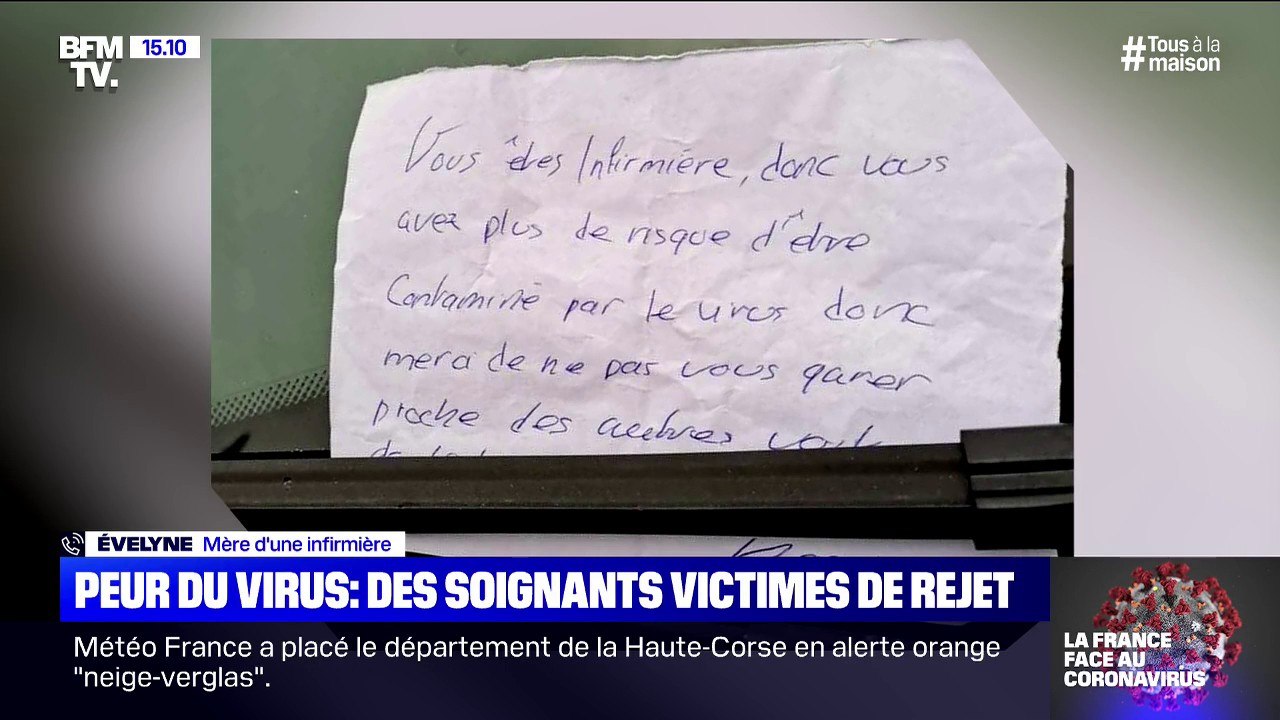 BFM
TV.
15.10
#Tous à la
maison
Vous êtes Infirmière, donc vous
avez plus de risque d'être
Contaminé par le virus donc
merci de ne pas vous garer
proche des autres
ÉVELYNE Mère d'une infirmière
PEUR DU VIRUS: DES SOIGNANTS VICTIMES DE REJET
Météo France a placé le département de la Haute-Corse en alerte orange
"neige-verglas".
LA FRANCE
FACE AU
CORONAVIRUS